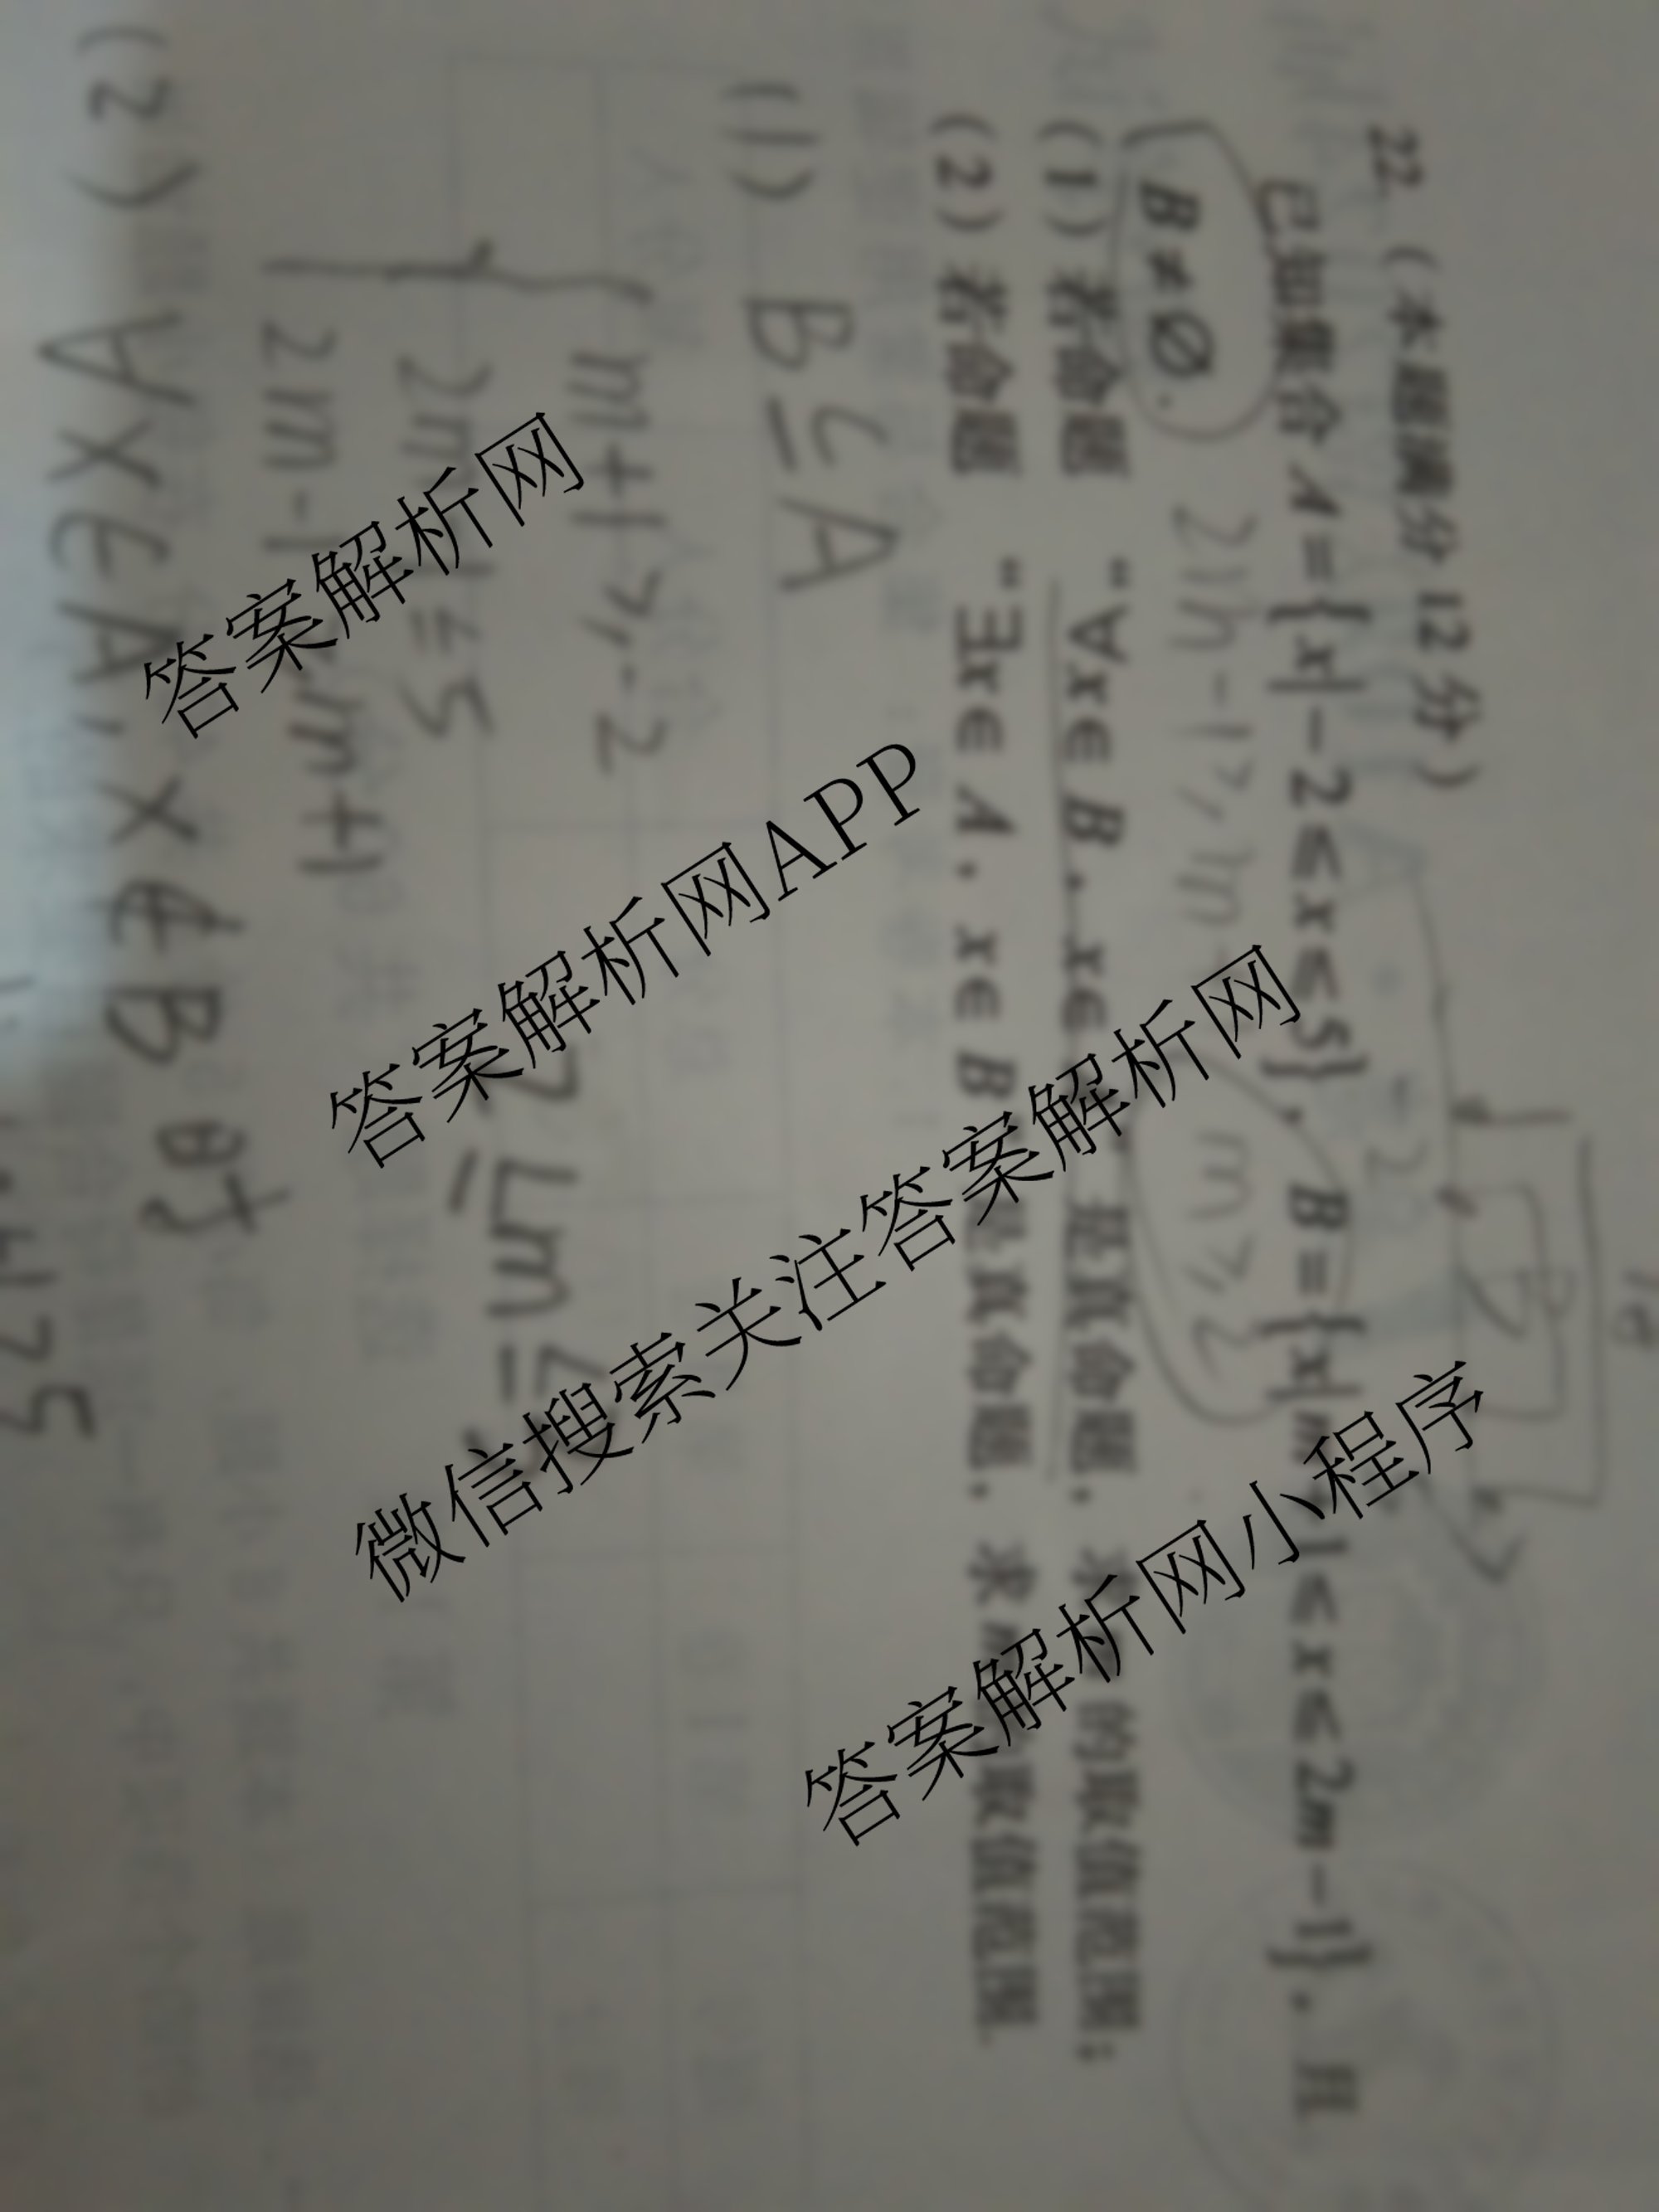 22.（本题满分12分）
已知集合 A={x|-2≤x≤5}，B={x|m+1≤x≤2m-1}，且
B≠∅.
2m-1≥m
m≥2
（1）若命题 "∀x∈B，x∈ 是真命题，求 的取值范围；
（2）若命题 "∃x∈A，x∈B 是真命题，求m 取值范围.
(1) B⊆A
m+1≥-2
2m-1≤5
2m-1≥m+1
2≤m≤3
(2) AX∈A，X∉B 时
答案解析网
答案解析网APP
微信搜索关注答案解析网
答案解析网小程序